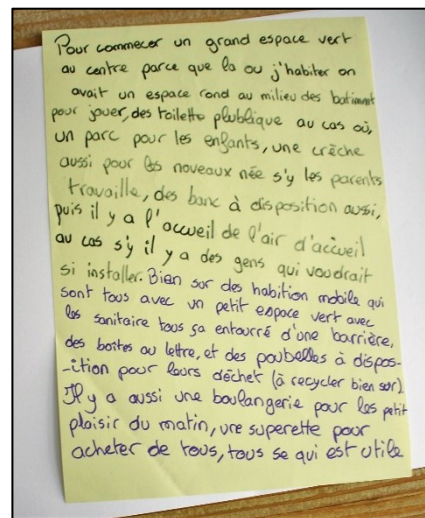 Pour commecer un grand espace vert
au centre parce que la ou j'habiter on
avait un espace rond au milieu des batiment
pour jouer, des toilette plublique au cas où,
un parc pour les enfants, une crèche
aussi pour les noveaux née s'y les parents
travaille, des banc à disposition aussi,
puis il y a l'accueil de l'air d'accueil
au cas s'y il y a des gens qui voudrait
si installer. Bien sur des habition mobile qui
sont tous avec un petit espace vert avec
les sanitaire tous ça entourré d'une barrière,
des boites au lettre, et des poubelles à dispos-
-ition pour leurs déchet (à recycler bien sur).
Il y a aussi une boulangerie pour les petit
plaisir du matin, une superette pour
acheter de tous, tous se qui est utile